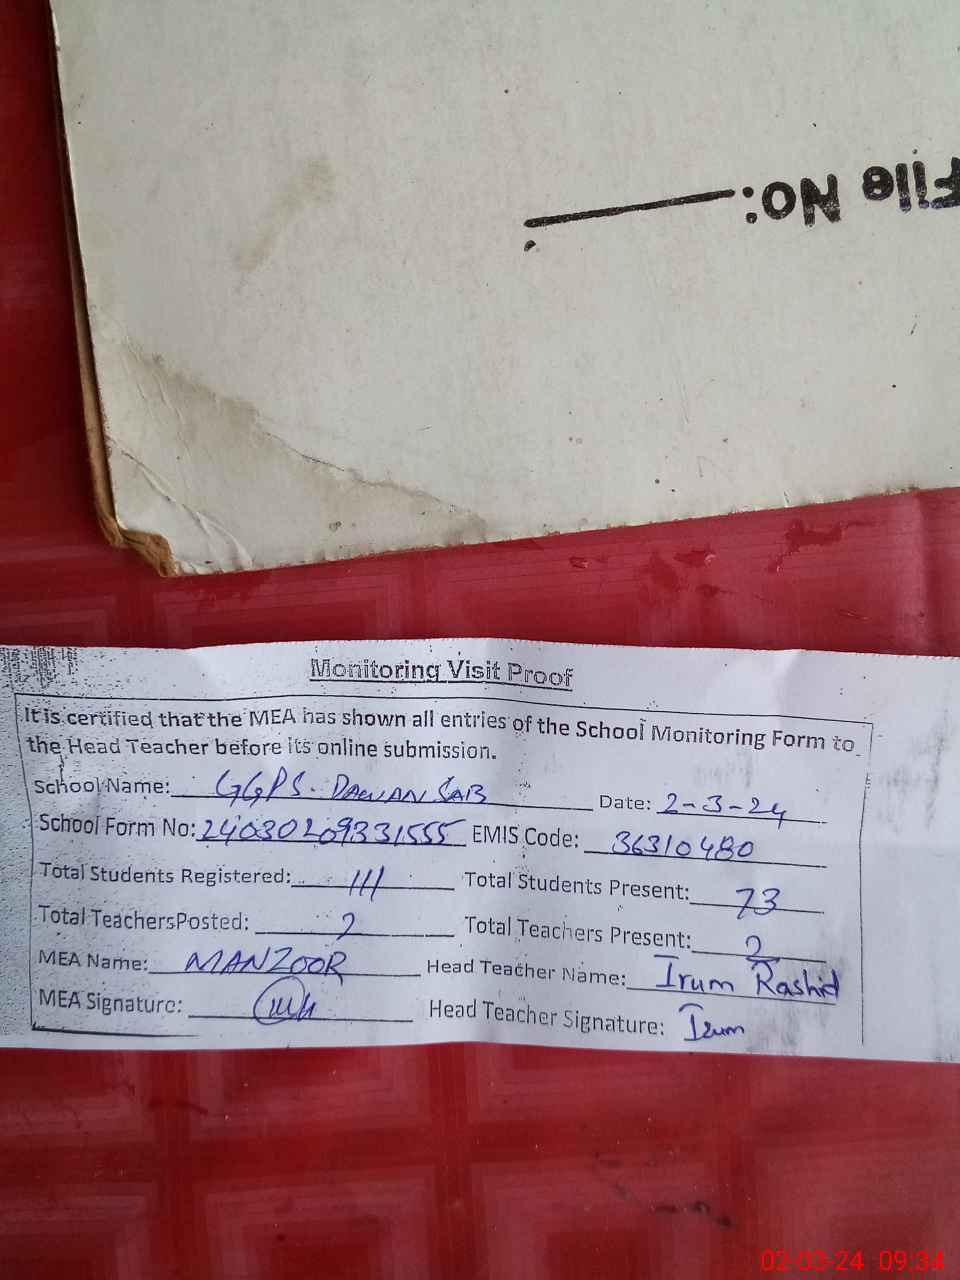 File No:
Monitoring Visit Proof
It is certified that the MEA has shown all entries of the School Monitoring Form to
the Head Teacher before its online submission.
School Name: GGPS. DAWAN SAB Date: 2-3-24
School Form No: 24030209331555 EMIS Code: 36310480
Total Students Registered: 111 Total Students Present: 73
Total TeachersPosted: 2 Total Teachers Present: 2
MEA Name: MANZOOR Head Teacher Name: Irum Rashid
MEA Signature: Head Teacher Signature: Irum
02-03-24 09:34